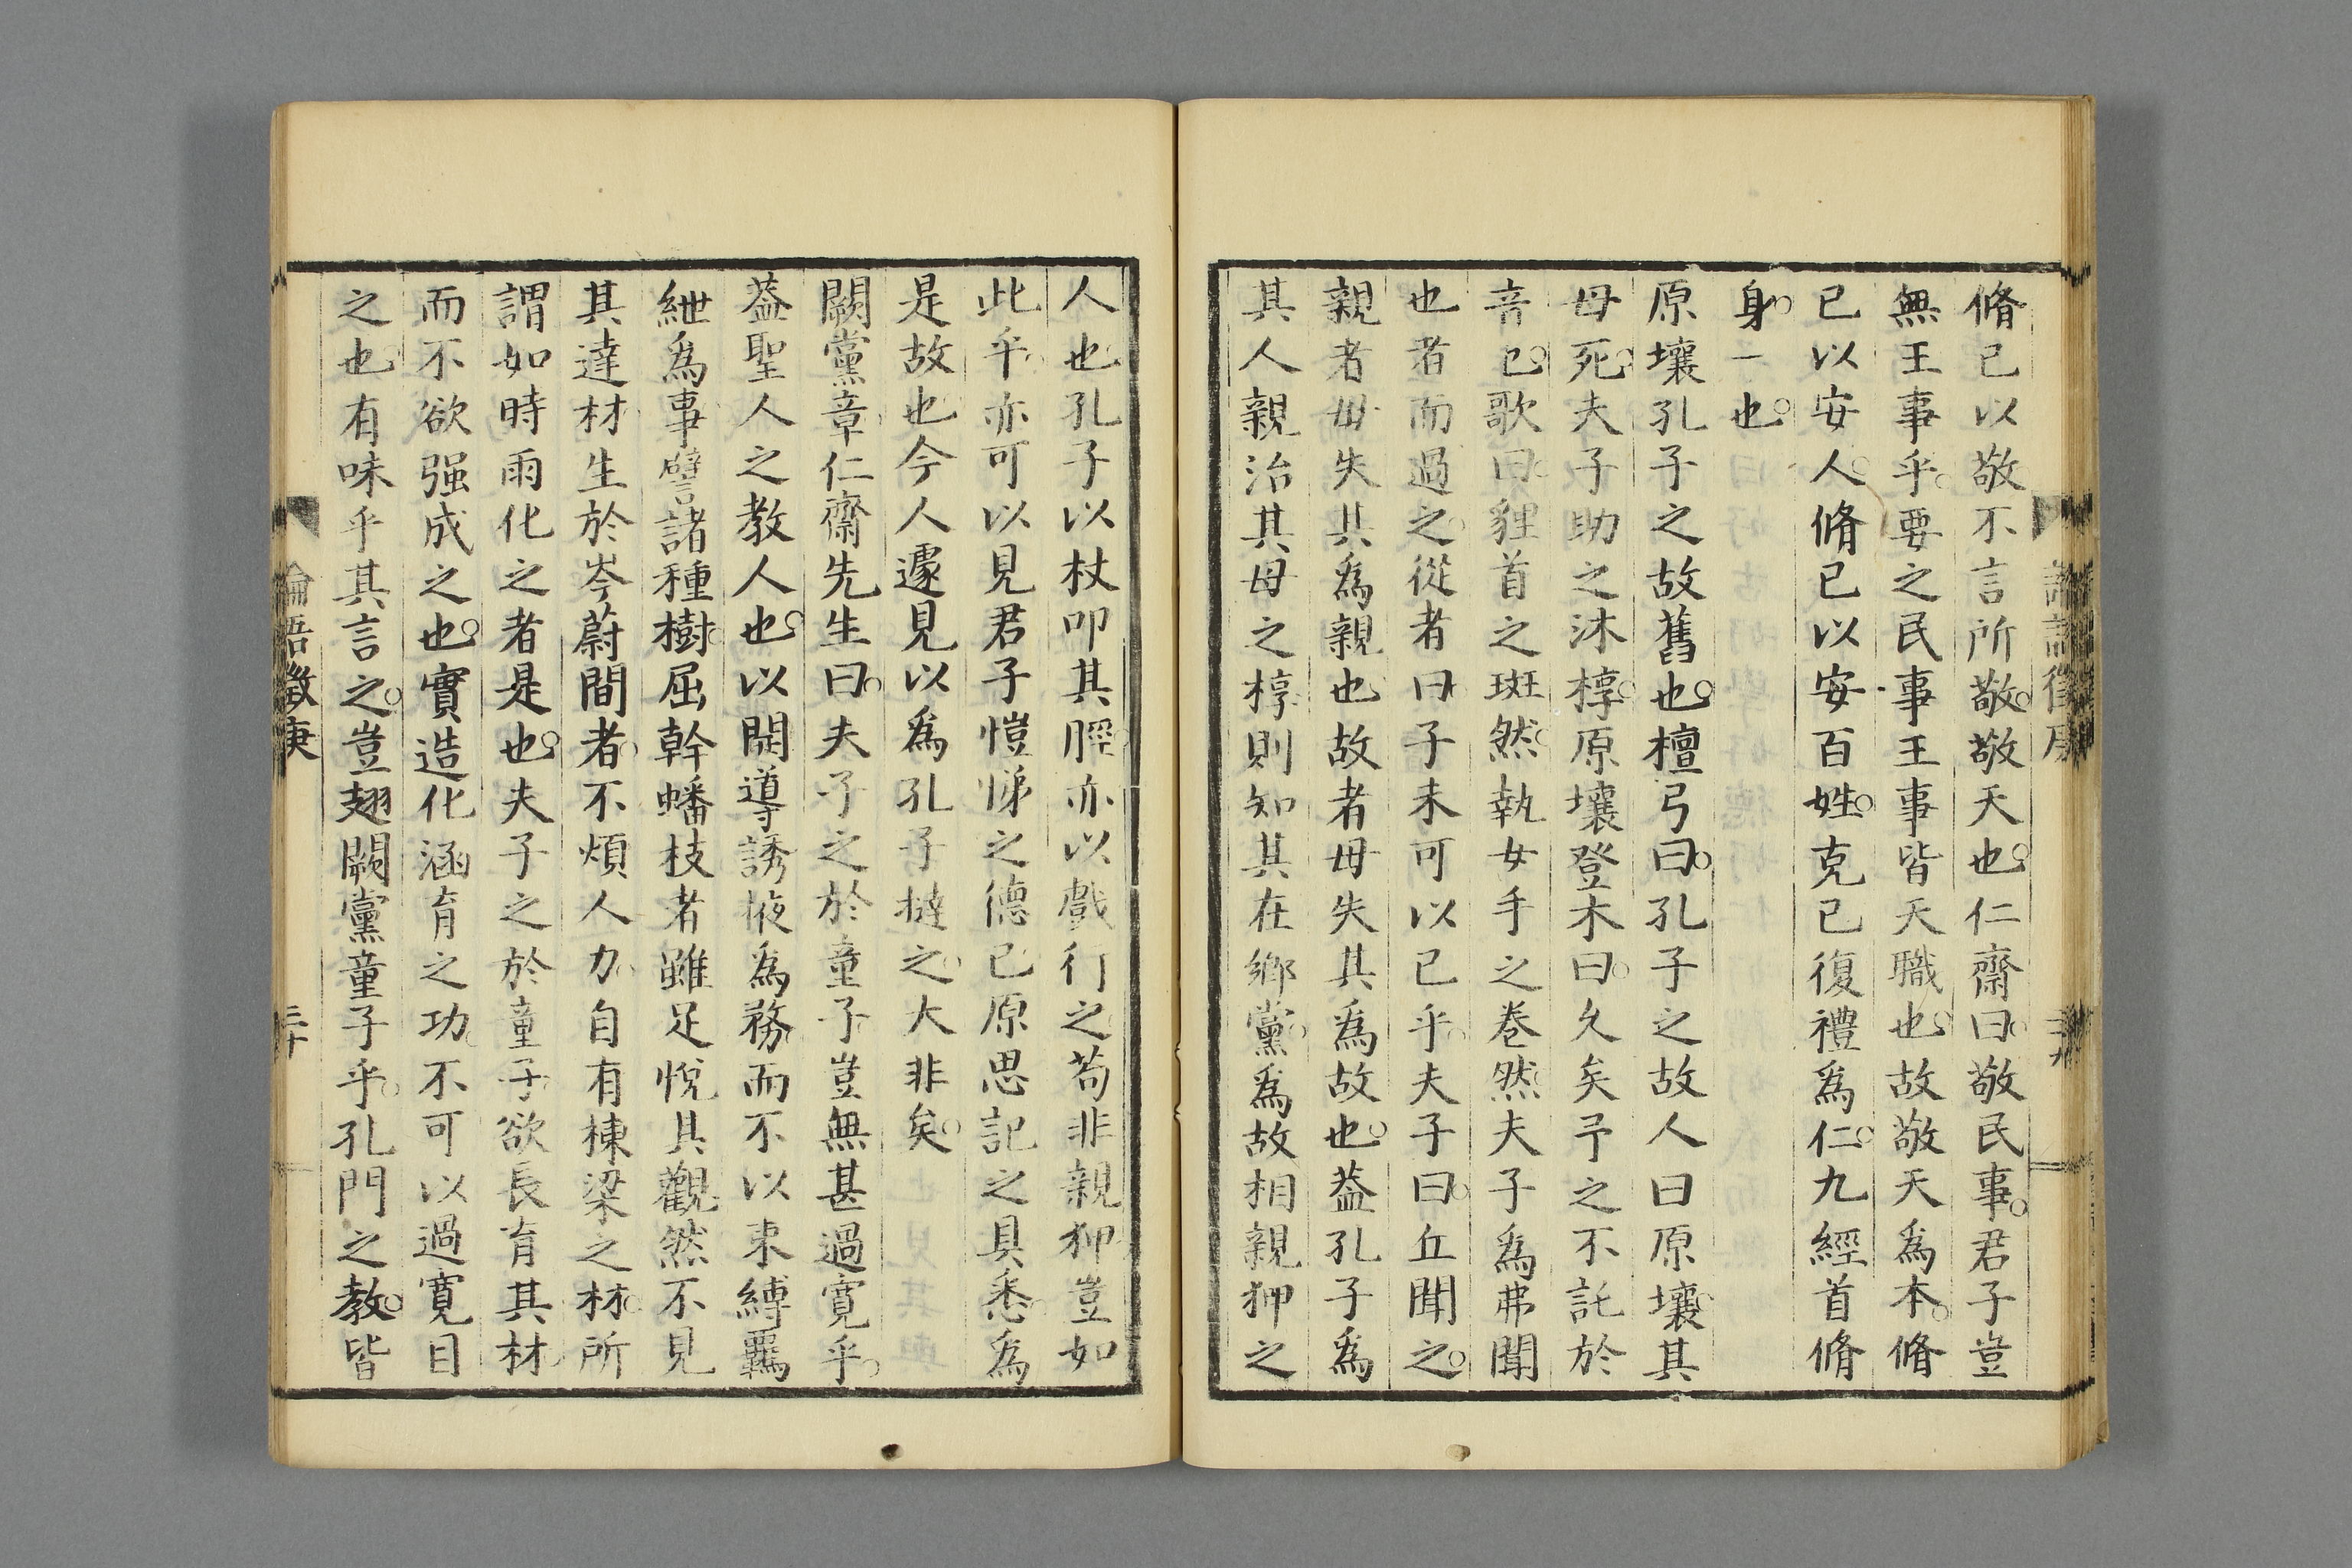 脩己以敬不言所敬敬天也仁齋曰敬民事君子豈
無王事乎要之民事王事皆天職也故敬天爲本脩
己以安人脩己以安百姓克己復禮爲仁九經首脩
身一也
原壤孔子之故舊也檀弓曰孔子之故人曰原壤其
母死夫子助之沐椁原壤登木曰久矣予之不託於
音也歌曰貍首之斑然執女手之卷然夫子爲弗聞
也者而過之從者曰子未可以已乎夫子曰丘聞之
親者毋失其爲親也故者毋失其爲故也蓋孔子爲
其人親治其母之椁則知其在鄉黨爲故相親狎之
人也孔子以杖叩其脛亦以戲行之苟非親狎豈如
此乎亦可以見君子愷悌之德已原思記之具悉爲
是故也今人遽見以爲孔子撻之大非矣
闕黨章仁齋先生曰夫子之於童子豈無甚過寬乎
蓋聖人之教人也以開導誘掖爲務而不以束縛羈
紲爲事譬諸種樹屈幹蟠枝者雖足悅其觀然不見
其達材生於岑蔚間者不煩人力自有棟梁之材所
謂如時雨化之者是也夫子之於童子欲長育其材
而不欲强成之也實造化涵育之功不可以過寬目
之也有味乎其言之豈翅闕黨童子乎孔門之教皆
論語徵庚
三十